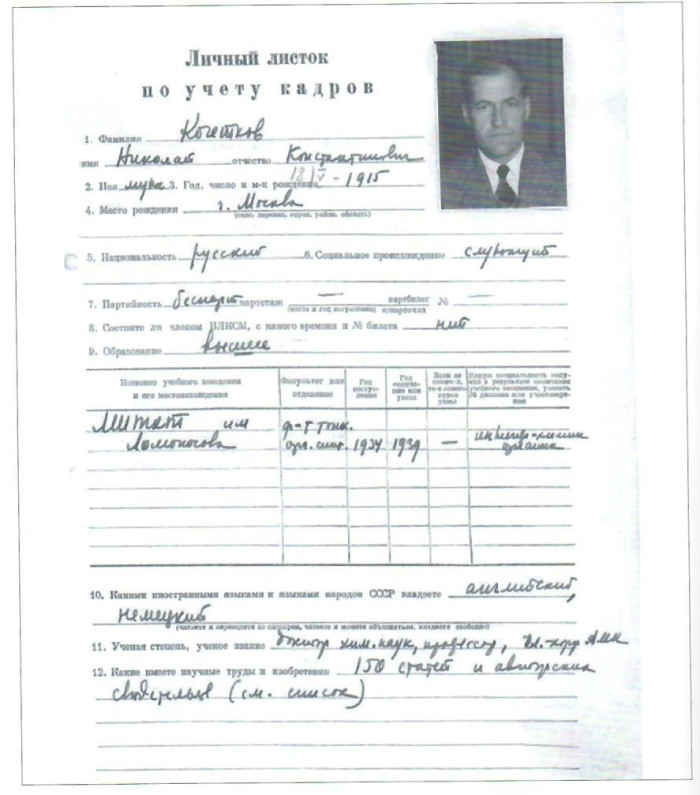 Личный листок
по учету кадров
1. Фамилия Кочетков
имя Николай отчество Константинович
2. Пол муж 3. Год, число и м-ц рождения 18/V - 1915
4. Место рождения г. Москва
(село, деревня, город, район, область)
5. Национальность русский 6. Социальное происхождение служащий
7. Партийность беспарт партстаж — партбилет № —
(место и год вступления) карточка
8. Состоите ли членом ВЛКСМ, с какого времени и № билета нет
9. Образование высшее
Название учебного заведения и его местонахождение
Факультет или отделение
Год поступления
Год окончания или ухода
Если не окончил, то с какого курса ушел
Какую специальность получил в результате окончания учебного заведения, указать № диплома или удостоверения
МИТХТ им ф-т тонк.
Ломоносова орг. синт. 1934 1939 — инженер-химик
органик
10. Какими иностранными языками и языками народов СССР владеете английский,
немецкий
(читаете и переводите со словарем, читаете и можете объясняться, владеете свободно)
11. Ученая степень, ученое звание доктор хим. наук, профессор, чл.-корр АМН
12. Какие имеете научные труды и изобретения 150 статей и авторских
свидетельств (см. список)